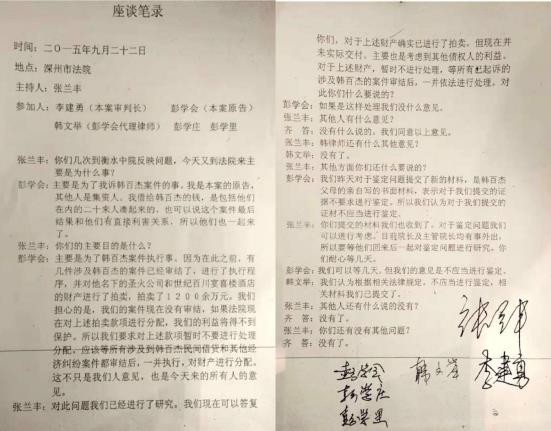 座谈笔录
时间：二〇一五年九月二十二日
地点：深州市法院
主持人：张兰丰
参加人：李建勇（本案审判长） 彭学会（本案原告）
韩文举（彭学会代理律师） 彭学庄 彭学里
张兰丰：你们几次到衡水中院反映问题，今天又到法院来主
要是为什么事？
彭学会：主要是为了我诉韩百杰案件的事。我是本案的原告，
其他人是集资人。我借给韩百杰的钱，是包括他们
在内的二十来人凑起来的，也可以说这个案件最后
结果和他们有直接利害关系，所以他们也一起来
了。
张兰丰：你们的主要目的是什么？
彭学会：主要是为了韩百杰案件执行事。因为在此之前，有
几件涉及韩百杰的案件已经审结了，进行了执行程
序，并对他名下的圣火公司和世纪百川宴喜楼酒店
的财产进行了拍卖，拍卖了1200余万元。我们
担心的是，我们的案件现在没有审结，如果法院现
在对上述拍卖款项进行分配，我们的利益将得不到
保护。所以我们要求对上述款项暂时不要进行处理
分配，应该等所有涉及到韩百杰民间借贷和其他经
济纠纷案件都审结后，一并执行，对财产进行分配。
这不只是我们人意见，也是今天来的所有人的意
见。
张兰丰：对此问题我们已经进行了研究，我们现在可以答复
你们，对于上述财产确实已进行了拍卖，但现在并
未实际交付。主要也是考虑到其他债权人的利益。
对于上述财产，暂时不进行处理，等所有已起诉的
涉及韩百杰的案件审结后，一并依法进行处理。对
此你们什么要说的？
彭学会：如果是这样处理我们没什么意见。
张兰丰：其他人有什么意见？
齐 答：没有什么说的。我们同意以上意见。
张兰丰：韩律师还有什么其他意见？
韩文举：没有了。
张兰丰：其他方面你们还什么要说的？
彭学会：我们昨天对于鉴定问题提交了新的材料，是韩百杰
父母的亲自写的书面材料，表示对于我们提交的证
据不要求进行鉴定。所以我们认为对于我们提交的
证材不应当进行鉴定。
张兰丰：你们提交的材料我们也收到了。对于鉴定问题我们
可以进行考虑。目前院长及主管院长均有事外出，
所以要等他们回来后一起对鉴定问题进行研究，你
们耐心等几天。
彭学会：我们可以等几天，但我们的意见是不应当进行鉴定。
韩文举：我们认为根据相关法律规定，不应当进行鉴定，相
关材料我们已提交了。
张兰丰：其他人还有什么说的没有？
齐 答：没有了。
张兰丰：你们还有没有其他问题？
齐 答：没有了。
彭学会 韩文举 李建勇
彭学庄
彭学里